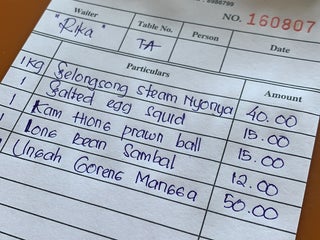 8986799
NO. 160807
Waiter Table No. Person Date
"Rika" TA
Particulars Amount
1kg Selongsong steam Nyonya 40.00
1 Salted egg squid 15.00
1 Kam Hiong prawn ball 15.00
1 Long Bean Sambal 12.00
Ungah Goreng Mangga 50.00